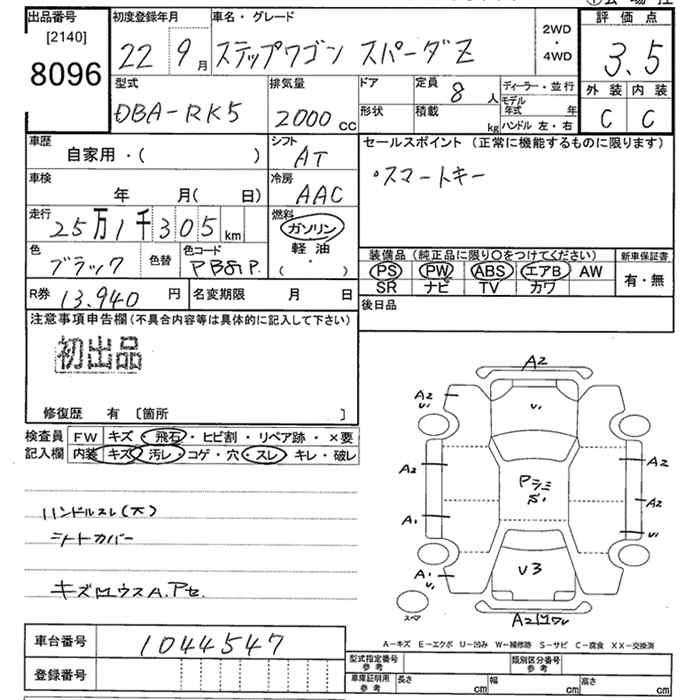 出品番号
[2140]
8096
初度登録年月
22 9月
車名・グレード
ステップワゴン スパーダZ
2WD
・
4WD
評価点
3.5
外装 内装
C C
型式
DBA-RK5
排気量
2000 cc
ドア
形状
定員
8 人
積載
kg
ディーラー・並行
モデル年式 年
ハンドル 左・右
車歴
自家用・( )
シフト
AT
車検
年 月( 日)
冷房
AAC
走行
25万1千305km
燃料
ガソリン
軽・油
( )
色
ブラック
色替
色コード
PB81P.
R券 13.940 円
名変期限 月 日
セールスポイント (正常に機能するものに限ります)
・スマートキー
装備品 (純正品に限り○をつけてください)
PS PW ABS エアB AW
SR ナビ TV カワ
新車保証書
有・無
後日品
注意事項申告欄(不具合内容等は具体的に記入して下さい)
初出品
修復歴 有 〔箇所 〕
検査員
記入欄
FW キズ・飛石・ヒビ割・リペア跡・×要
内装 キズ・汚レ・コゲ・穴・スレ・キレ・破レ
ハンドルスレ(大)
シートカバー
A2
A2
U1
U1
A2
A2
A2
A1
U1
A1
U
U3
スペア
A-キズ E-エクボ U-凹み W-補修跡 S-サビ C-腐食 XX-交換済
車台番号 1044547
登録番号
型式指定番号
参考
類別区分番号
参考
車庫証明用
参考
長さ cm 幅 cm 高さ cm